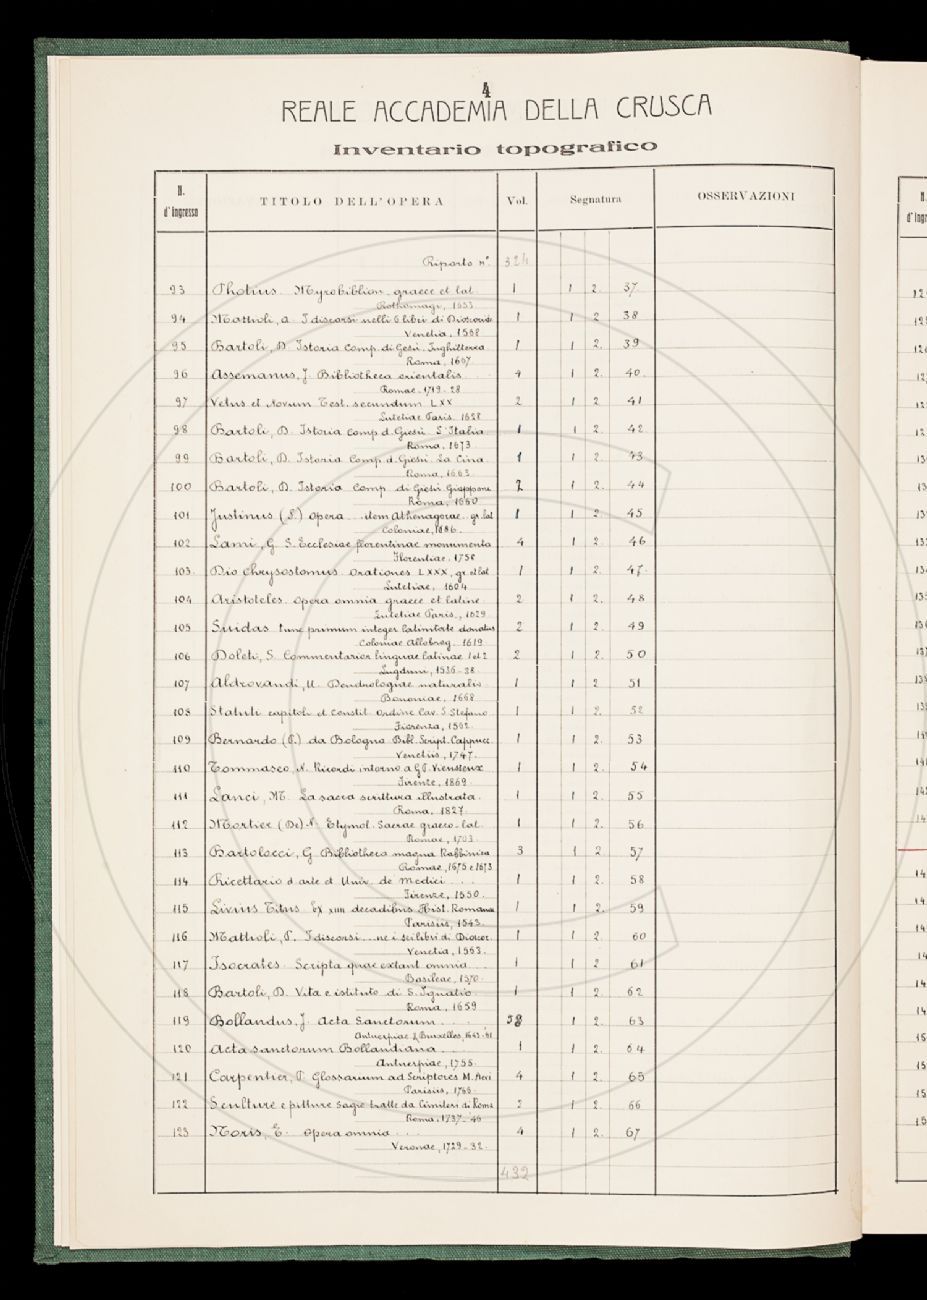 4
REALE ACCADEMIA DELLA CRUSCA
Inventario topografico
N. d'Ingresso TITOLO DELL'OPERA Vol. Segnatura OSSERVAZIONI
Riporto n°. 324
93 Photius. Myrobiblion graece et lat. 1 1 2. 37
Rothomagi, 1653
94 Mattioli, a I discorsi nelli 6 libri di Dioscoride 1 1 2 38
Venetia, 1568
95 Bartoli, D. Istoria Comp. di Gesù. Inghilterra 1 1 2. 39
Roma, 1667
96 Assemanus, J. Bibliotheca orientalis. 4 1 2. 40
Romae. 1719-28
97 Vetus et Novum Test. secundum LXX 2 1 2 41
Lutetiae Paris. 1628
98 Bartoli, D. Istoria Comp d. Giesù L'Italia 1 1 2. 42
Roma, 1673
99 Bartoli, D. Istoria Comp d. Giesù La Cina 1 1 2. 43
Roma, 1663
100 Bartoli, D. Istoria Comp. di Giesù Giappone 2 1 2. 44
Roma, 1660
101 Justinus (S.) opera .. Item Athenagorae. gr. lat 1 1 2 45
Coloniae, 1686.
102 Lami, G. S. Ecclesiae florentinae monumenta 4 1 2. 46
Florentiae. 1758
103 Dio Chrysostomus Orationes LXXX, gr. et lat 1 1 2. 47
Lutetiae, 1604
104 Aristoteles. Opera omnia graece et latine 2 1 2. 48
Lutetiae Paris., 1629
105 Suidas tunc primum integer latinitate donatus 2 1 2. 49
Coloniae Allobrog. 1619
106 Doleti, S. Commentarior linguae latinae 1 et 2 2 1 2. 50
Lugduni, 1536-38
107 Aldrovandi, U. Dendrologiae naturalis 1 1 2 51
Bononiae, 1668
108 Statuti capitoli et Constit. Ordine Cav. S Stefano 1 1 2. 52
Fiorenza, 1562
109 Bernardo (P.) da Bologna Bibl. Script. Cappucc 1 1 2. 53
Venetiis, 1747.
110 Tommaseo, N. Ricordi intorno a G.P. Vieusseux 1 1 2. 54
Firenze, 1869
111 Lanci, M. La sacra scrittura illustrata. 1 1 2. 55
Roma. 1827
112 Mortier (De) N. Etymol. Sacrae graeco-lat. 1 1 2. 56
Romae, 1703
113 Bartolocci, G Bibliotheca magna Rabbinica 3 1 2 57
Romae, 1675 e 1693
114 Ricettario d. arte et Univ. de Medici . . . 1 1 2. 58
Firenze, 1550
115 Livius Titus. Ex XIIII decadibus Hist. Romanae 1 1 2. 59
Parisiis, 1543
116 Mattioli, P. I discorsi....ne i sei libri di Dioscor. 1 1 2. 60
Venetia, 1563.
117 Isocrates. Scripta quae extant omnia 1 1 2 61
Basileae, 1570
118 Bartoli, D. Vita e istituto di S. Ignatio 1 1 2. 62
Roma, 1659
119 Bollandus, J. Acta Sanctorum 58 1 2. 63
Antuerpiae & Bruxelles, 1643-61
120 Acta sanctorum Bollandiana . . . 1 1 2. 64
Antuerpiae, 1755.
121 Carpentier, P. Glossarium ad Scriptores M. Aevi 4 1 2. 65
Parisiis, 1766
122 Sculture e pitture sagre tratte da Cimiteri di Roma 3 1 2. 66
Roma. 1737-46
123 Noris, E. Opera omnia . . . 4 1 2. 67
Veronae, 1729-32.
432